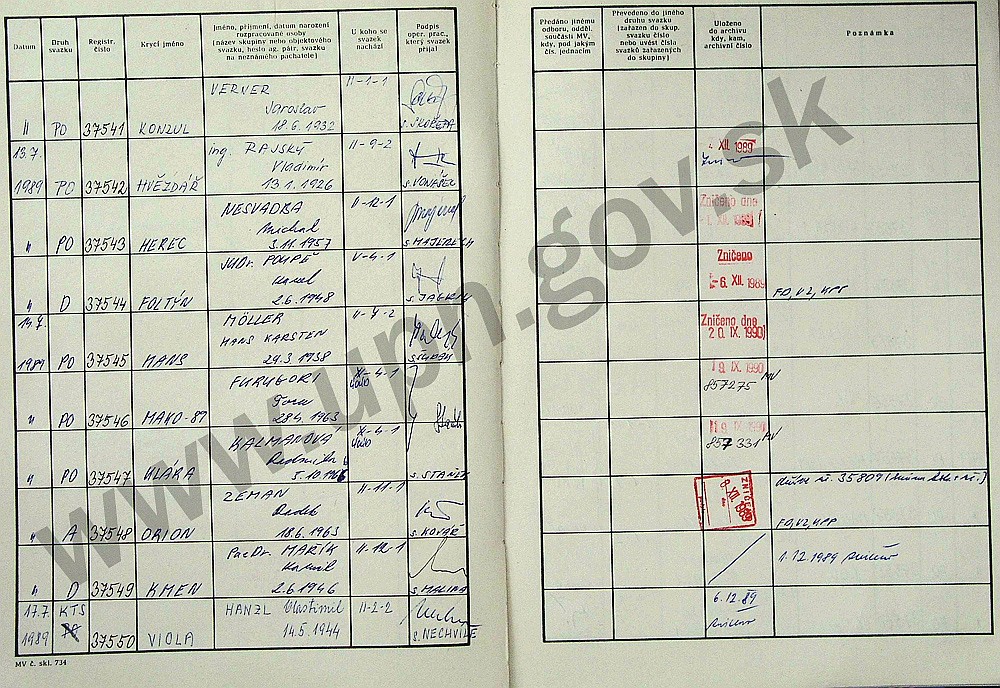 Datum
Druh svazku
Registr. číslo
Krycí jméno
Jméno, příjmení, datum narození
rozpracované osoby
(název skupiny nebo objektového
svazku, heslo ag. pátr. svazku
na neznámého pachatele)
U koho se
svazek
nachází
Podpis
oper. prac.,
který svazek
přijal
Předáno jinému
odboru, odděl.
součásti MV,
kdy, pod jakým
čís. jednacím
Převedeno do jiného
druhu svazku
(zařazen do skup.
svazku číslo
nebo uvést číslo
svazků zařazených
do skupiny)
Uloženo
do archivu
kdy, kam,
archivní číslo
Poznámka
VERNER II-1-1
Jaroslav
" PO 37541 KONZUL 18.6.1932 s. SKOŘEPA
13.7. Ing. RAJSKÝ II-9-2 XII. 1989
Vladimír
1989 PO 37542 HVĚZDÁŘ 13.1.1926 s. VONÁŠEK
NESVADBA II-12-1 Zničeno dne
Michal XII. 1989
" PO 37543 HEREC 3.11.1957
JUDr. POUPĚ V-4-1 Zničeno
Karel -6. XII. 1989
" D 37544 FOLTÝN 2.6.1948 FO, VZ, KPP
14.7. MÖLLER II-7-2 Zničeno dne
HANS KARSTEN 20. IX. 1990
1989 PO 37545 HANS 29.3.1938
FURUGORI X-4-1 19. IX. 1990
857275 MV
" PO 37546 MAKO-89 1963
KALMANOVÁ X-4-1 19. IX. 1990
857331 MV
" PO 37547 KLÁRA 5.10. s. STANĚK
ZEMAN II-11-1 ZNIČENO XII. 1989 35809
" A 37548 ORION 18.6.1963 s. KOVÁŘ FO, VZ, KPP
PaeDr. MAŘÍK II-12-1 1.12.1989
Kamil
" D 37549 KMEN 2.6.1946 s. MALINA
17.7. KTS HANZL Vlastimil II-2-2 6.12.89
1989 37550 VIOLA 14.5.1944 s. NECHVÍLE
MV č. skl. 734
www.upn.gov.sk